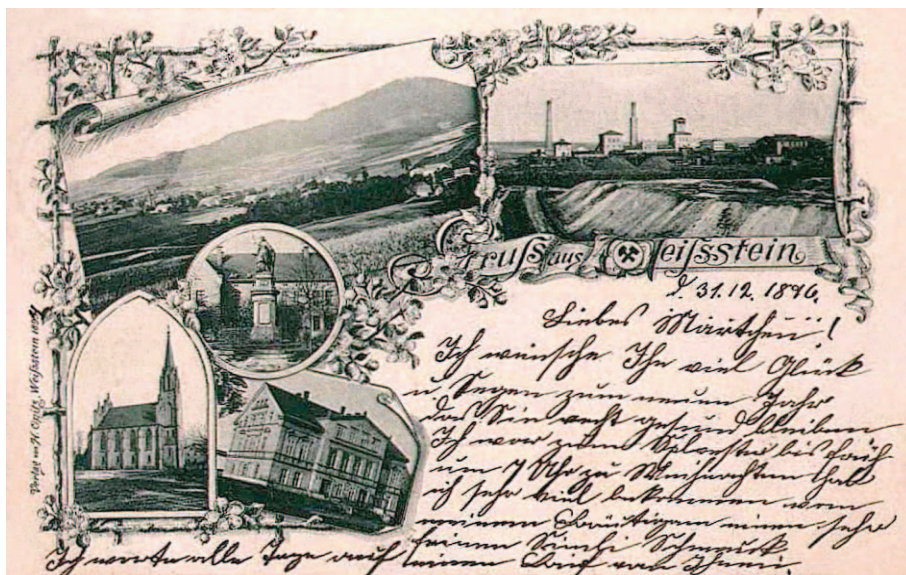 Gruſs aus Weiſsstein
d. 31.12.1896.
Liebes Märtchen!
Ich wünsche Ihn viel Glück
u. Segen zum neuen Jahr
das Sie recht gesund bleiben
Ich war zum Sylvester bis früh
um 7 Uhr zu Weihnachten hab
ich sehr viel bekommen von
meinem Bräutigam einen sehr
feinen Simili Schmuck
Ich warte alle Tage auf einen von Ihnen.
Verlag von H. Opitz, Weiſsstein